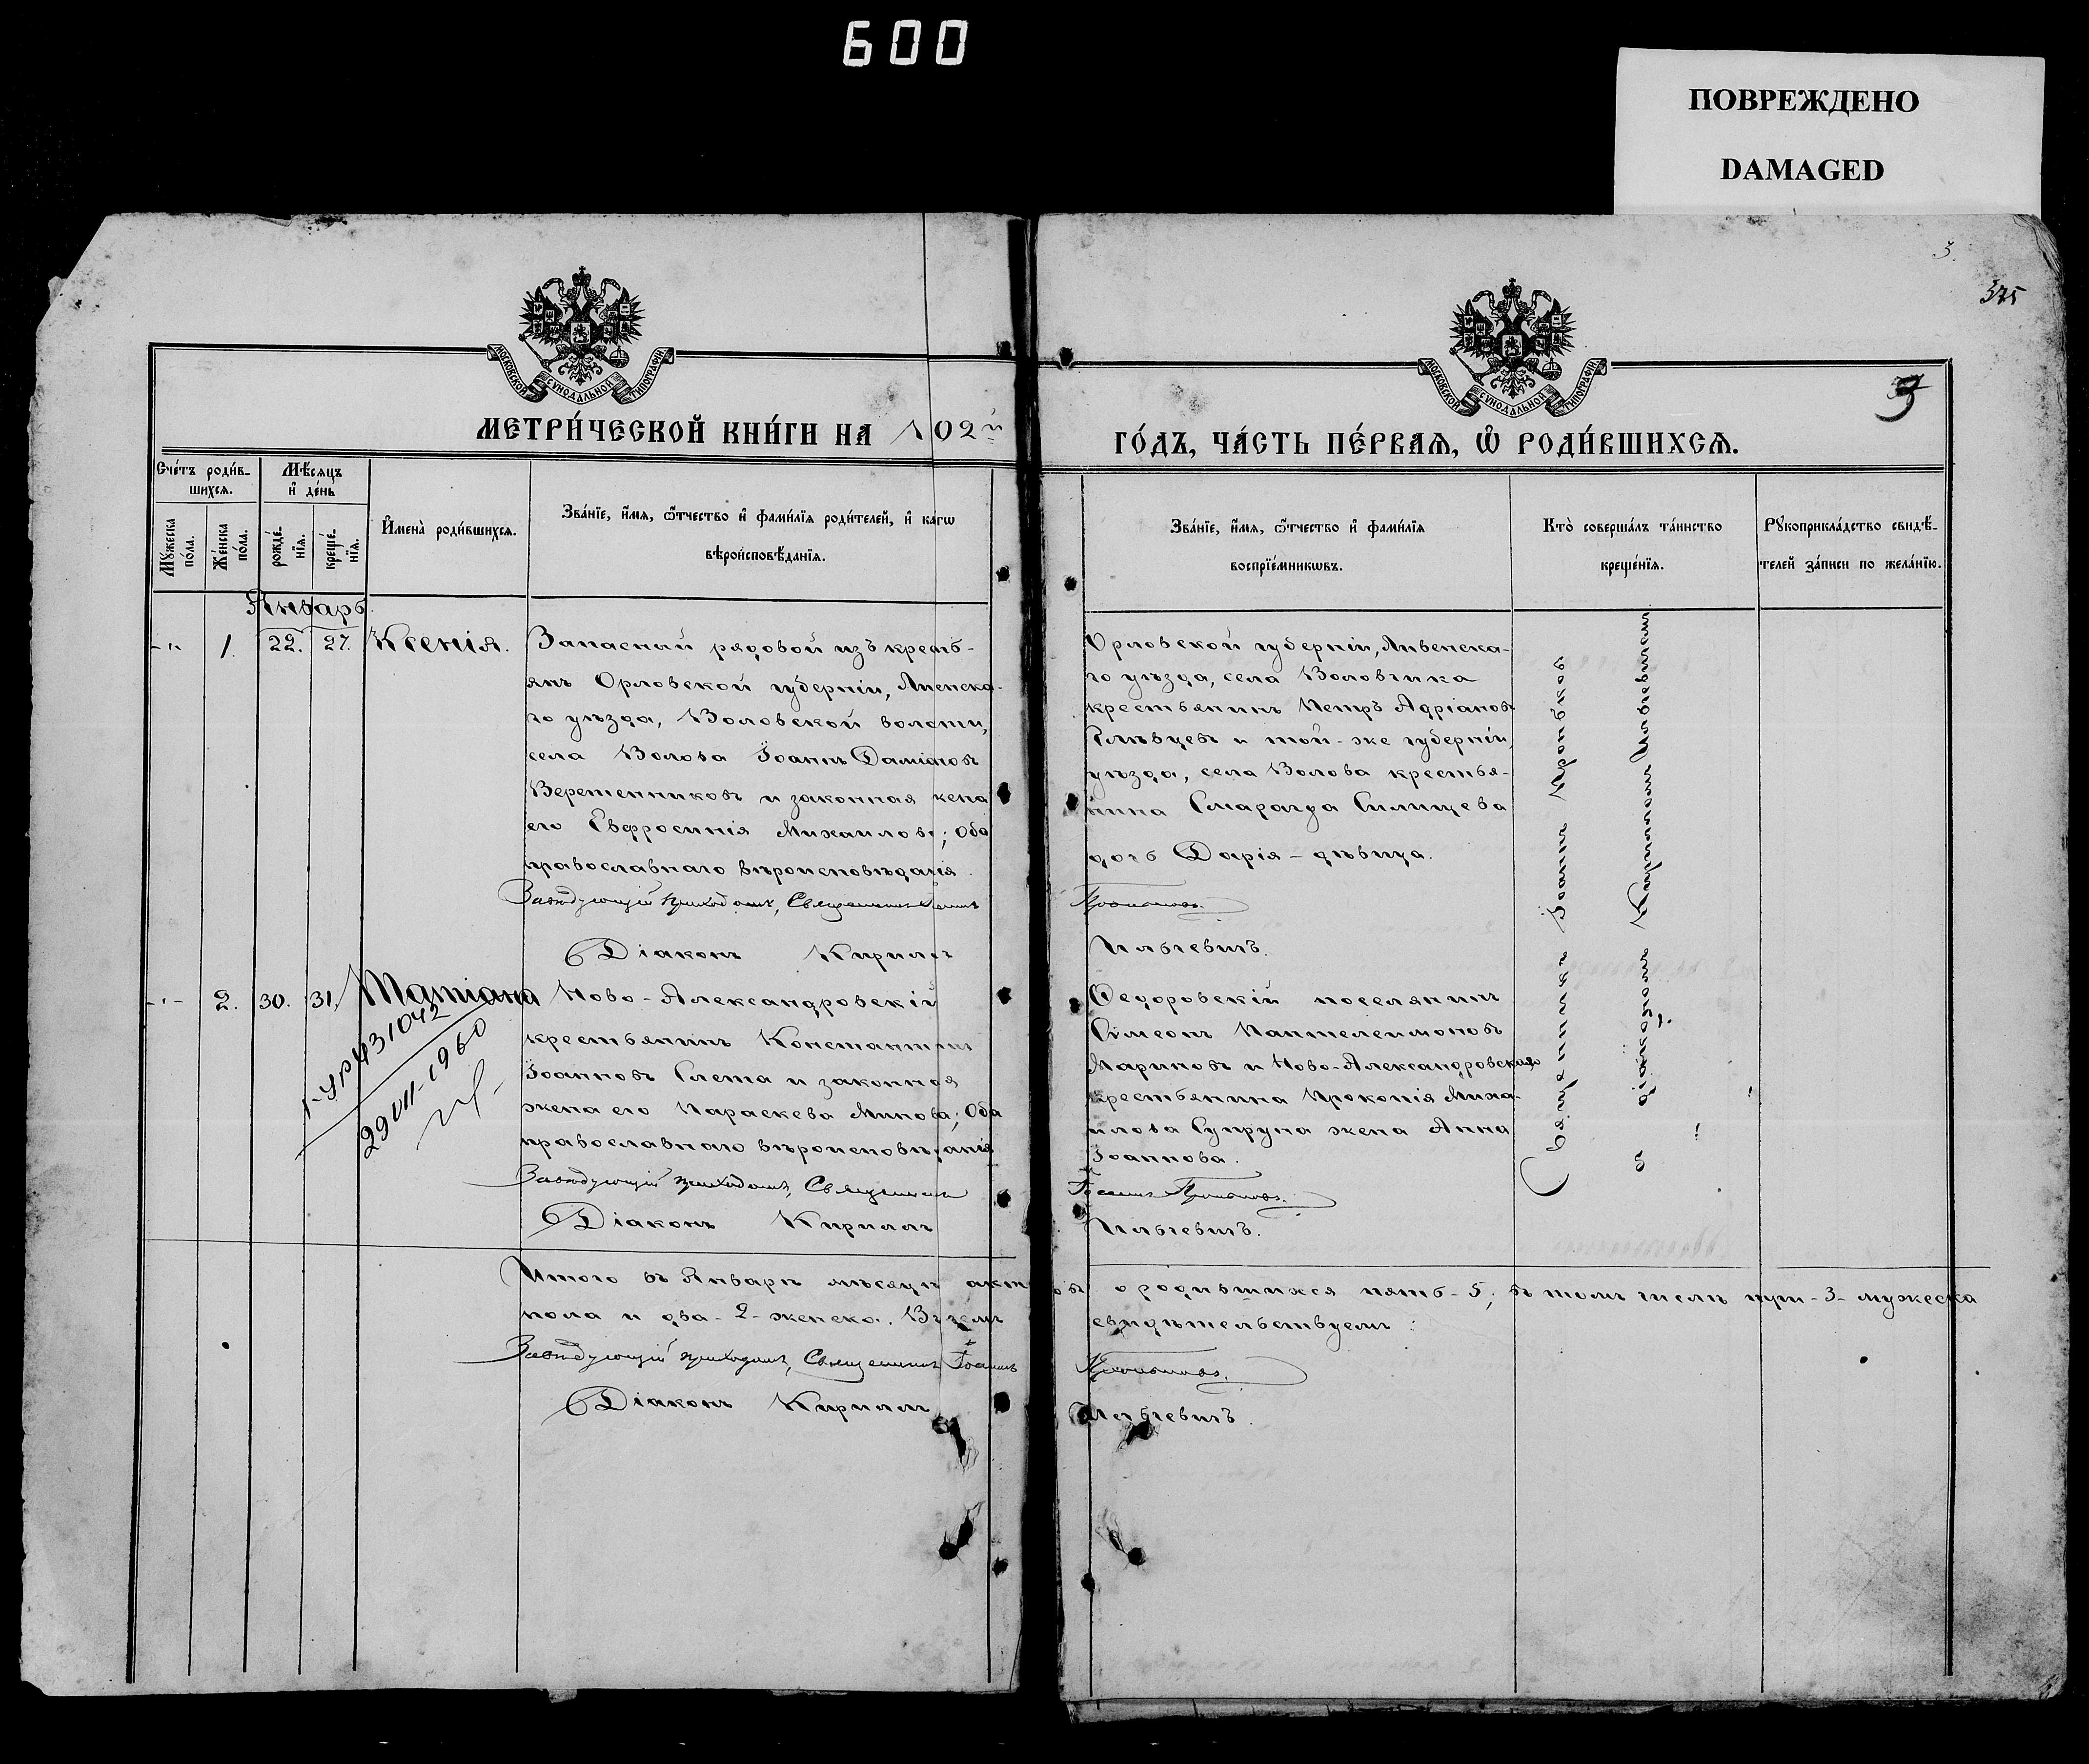 600
ПОВРЕЖДЕНО
DAMAGED
3.
375
МОСКОВСКОЙ СѴНОДАЛЬНОЙ ТИПОГРАФІИ
МОСКОВСКОЙ СѴНОДАЛЬНОЙ ТИПОГРАФІИ
МЕТРИ́ЧЕСКОЙ КНИ́ГИ НА 1902й
ГО́ДЪ, ЧА́СТЬ ПЕ́РВАѦ, Ѡ҆ РОДИ́ВШИХСѦ.
Сче́тъ роди́в-
шихсѧ.
Мꙋ́жеска по́ла.
Же́нска по́ла.
Мѣ́сяцъ
и҆ де́нь
рожде́-
нїѧ.
креще́-
нїѧ.
И҆мена̀ роди́вшихсѧ.
Зва́нїе, и҆́мя, ѻ҆́тчество и҆ фами́лїя роди́телей, и҆ каго̀
вѣроисповѣ́данїѧ.
Зва́нїе, и҆́мя, ѻ҆́тчество и҆ фами́лїя
воспрїе́мникѡвъ.
Кто̀ соверша́лъ та́инство
креще́нїѧ.
Рꙋкоприкла́дство свидѣ́-
телей за́писи по жела́нїю.
Январь.
-"- 1. 22. 27. Ксенія.
Запасный рядовой изъ кресть-
янъ Орловской губерніи, Ливенска-
го уѣзда, Воловской волости,
села Волова Іоаннъ Даміановъ
Веретенниковъ и законная жена
его Евфросинія Михаилова; Оба
православнаго вѣроисповѣданія.
Завѣдующій приходомъ, Священникъ Іоаннъ
Діаконъ Кириллъ
Орловской губерніи, Ливенска-
го уѣзда, села Воловчика
крестьянинъ Петръ Адріановъ
и той-же губерніи,
уѣзда, села Волова крестья-
нина Смарагда Силищева
дочь Дарія - дѣвица.
Ильчевичъ.
Священникъ Іоаннъ
съ діакономъ Кирилломъ Ильчевичемъ
-"- 2. 30. 31. Татіана
431042
29 VII-1960
Ново-Александровскій
крестьянинъ Константинъ
Іоанновъ Слета и законная
жена его Параскева Минова; Оба
православнаго вѣроисповѣданія
Завѣдующій приходомъ, Священникъ
Діаконъ Кириллъ
Ѳедоровскій поселянинъ
Сѵмеонъ Пантелеимоновъ
Мариновъ и Ново-Александровскаго
крестьянина Прокопія Миха-
илова Супруна жена Анна
Іоаннова.
Іоаннъ
Ильчевичъ.
Итого въ Январѣ мѣсяцѣ актовъ о родившихся пять-5; въ томъ числѣ три-3-мужеска
пола и два-2-женска. Въ чемъ свидѣтельствуемъ:
Завѣдующій приходомъ, Священникъ Іоаннъ
Діаконъ Кириллъ Ильчевичъ.